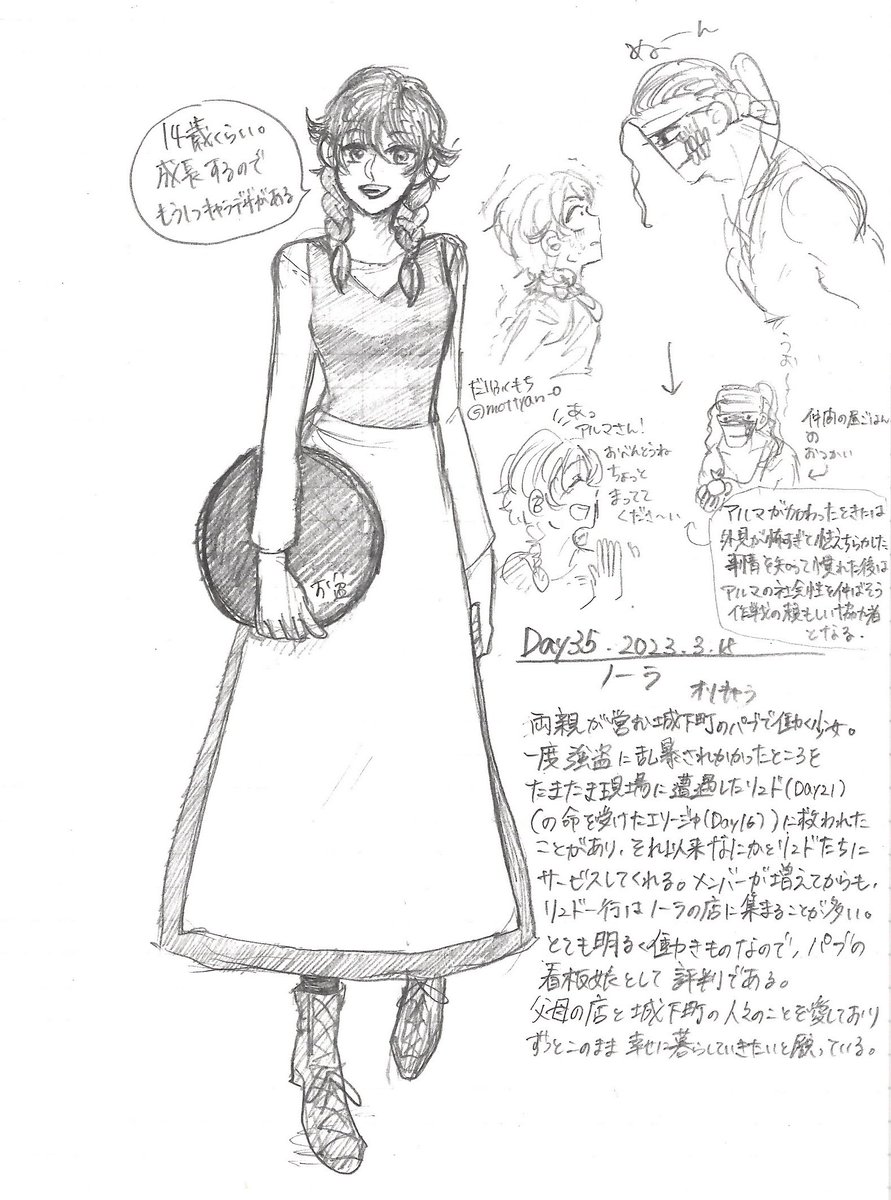 14歳くらい。
成長するので
もう1つキャラデザがある
ぬーん
だいふくもち
@mottyan_o
あっ
アルマさん!
おべんとうね
ちょっと
まってて
くださ〜い
うお〜
仲間の昼ごはん
の
おつかい
アルマが加わったときには
外見が怖すぎて怯えちらかした
事情を知って慣れた後は
アルマの社会性を伸ばそう
作戦の頼もしい協力者
となる.
Day35.2023.3.18
ノーラ
オリキャラ
両親が営む城下町のパブで働く少女。
一度強盗に乱暴されかかったところを
たまたま現場に遭遇したリンド(Day21)
(の命を受けたエリージャ(Day16))に救われた
ことがあり、それ以来なにかとリンドたちに
サービスしてくれる。メンバーが増えてからも、
リンド一行はノーラの店に集まることが多い。
とても明るく働きものなので、パブの
看板娘として評判である。
父母の店と城下町の人々のことを愛しており
ずっとこのまま幸せに暮らしていきたいと願っている。